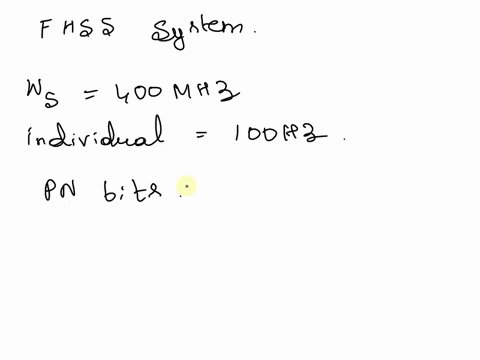 FHSS System.
Ws = 400 MHz
individual = 100Hz.
PN bits.